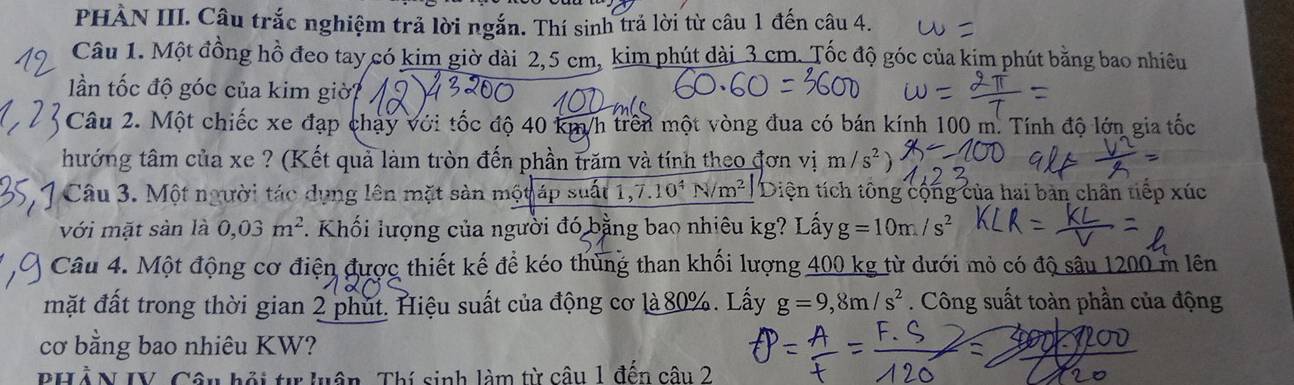 PHẦN III. Câu trắc nghiệm trả lời ngắn. Thí sinh trả lời từ câu 1 đến câu 4. ω =
12 Câu 1. Một đồng hồ đeo tay có kim giờ dài 2,5 cm, kim phút dài 3 cm. Tốc độ góc của kim phút bằng bao nhiêu
lần tốc độ góc của kim giờ? 12 43200 60.60 = 3600 ω = 2π/T =
100 m/s
1,23 Câu 2. Một chiếc xe đạp chạy với tốc độ 40 km/h trên một vòng đua có bán kính 100 m. Tính độ lớn gia tốc
hướng tâm của xe ? (Kết quả làm tròn đến phần trăm và tính theo đơn vị m/s²) = 100 v²/r =
1,23
35,7 Câu 3. Một người tác dụng lên mặt sàn một áp suất 1,7.10⁴ N/m² Diện tích tổng cộng của hai bàn chân tiếp xúc
với mặt sàn là 0,03 m². Khối lượng của người đó bằng bao nhiêu kg? Lấy g = 10m/s² KLR = KL/V =
51
,9 Câu 4. Một động cơ điện được thiết kế để kéo thùng than khối lượng 400 kg từ dưới mỏ có độ sâu 1200 m lên
120s
mặt đất trong thời gian 2 phút. Hiệu suất của động cơ là 80%. Lấy g = 9,8m/s². Công suất toàn phần của động
cơ bằng bao nhiêu KW? P = A/t = F.S/120 = 400.1200/120
PHẦN IV. Câu hỏi tự luận. Thí sinh làm từ câu 1 đến câu 2